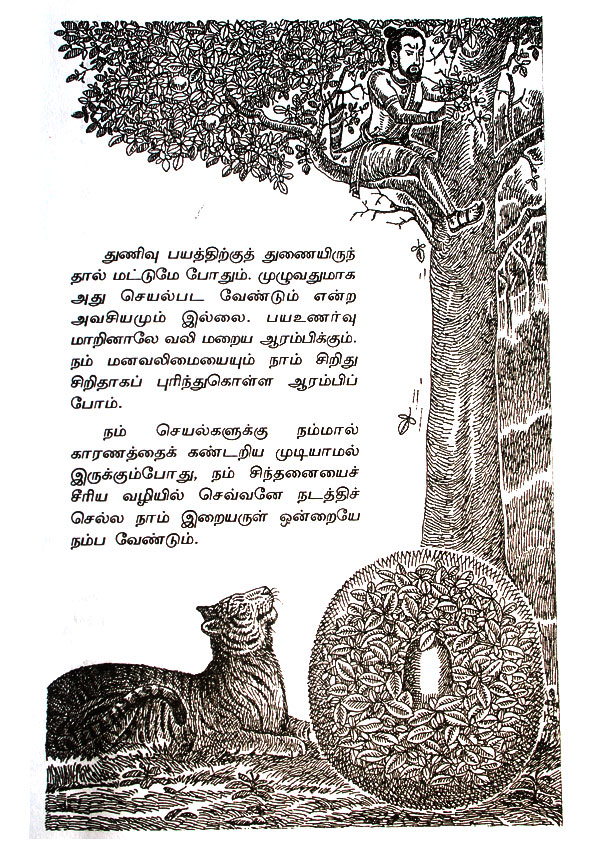 துணிவு பயத்திற்குத் துணையிருந்
தால் மட்டுமே போதும். முழுவதுமாக
அது செயல்பட வேண்டும் என்ற
அவசியமும் இல்லை. பயஉணர்வு
மாறினாலே வலி மறைய ஆரம்பிக்கும்.
நம் மனவலிமையையும் நாம் சிறிது
சிறிதாகப் புரிந்துகொள்ள ஆரம்பிப்
போம்.
நம் செயல்களுக்கு நம்மால்
காரணத்தைக் கண்டறிய முடியாமல்
இருக்கும்போது, நம் சிந்தனையைச்
சீரிய வழியில் செவ்வனே நடத்திச்
செல்ல நாம் இறையருள் ஒன்றையே
நம்ப வேண்டும்.